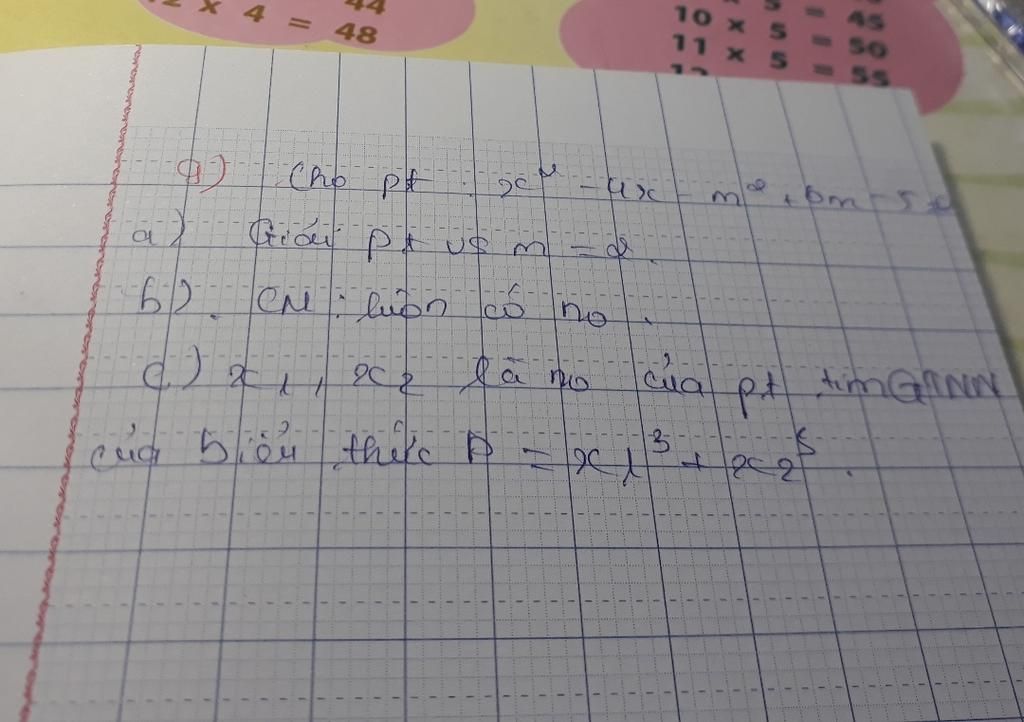 12 x 4 = 48
44
x 5 = 45
10 x 5 = 50
11 x 5 = 55
9) Cho pt : x² - 4x - m² + 6m - 5 =
a) Giải pt vs m = 2.
b). CM : luôn có no.
c) x1, x2 là no của pt tìm GTNN
của biểu thức P = x1³ + x2³.